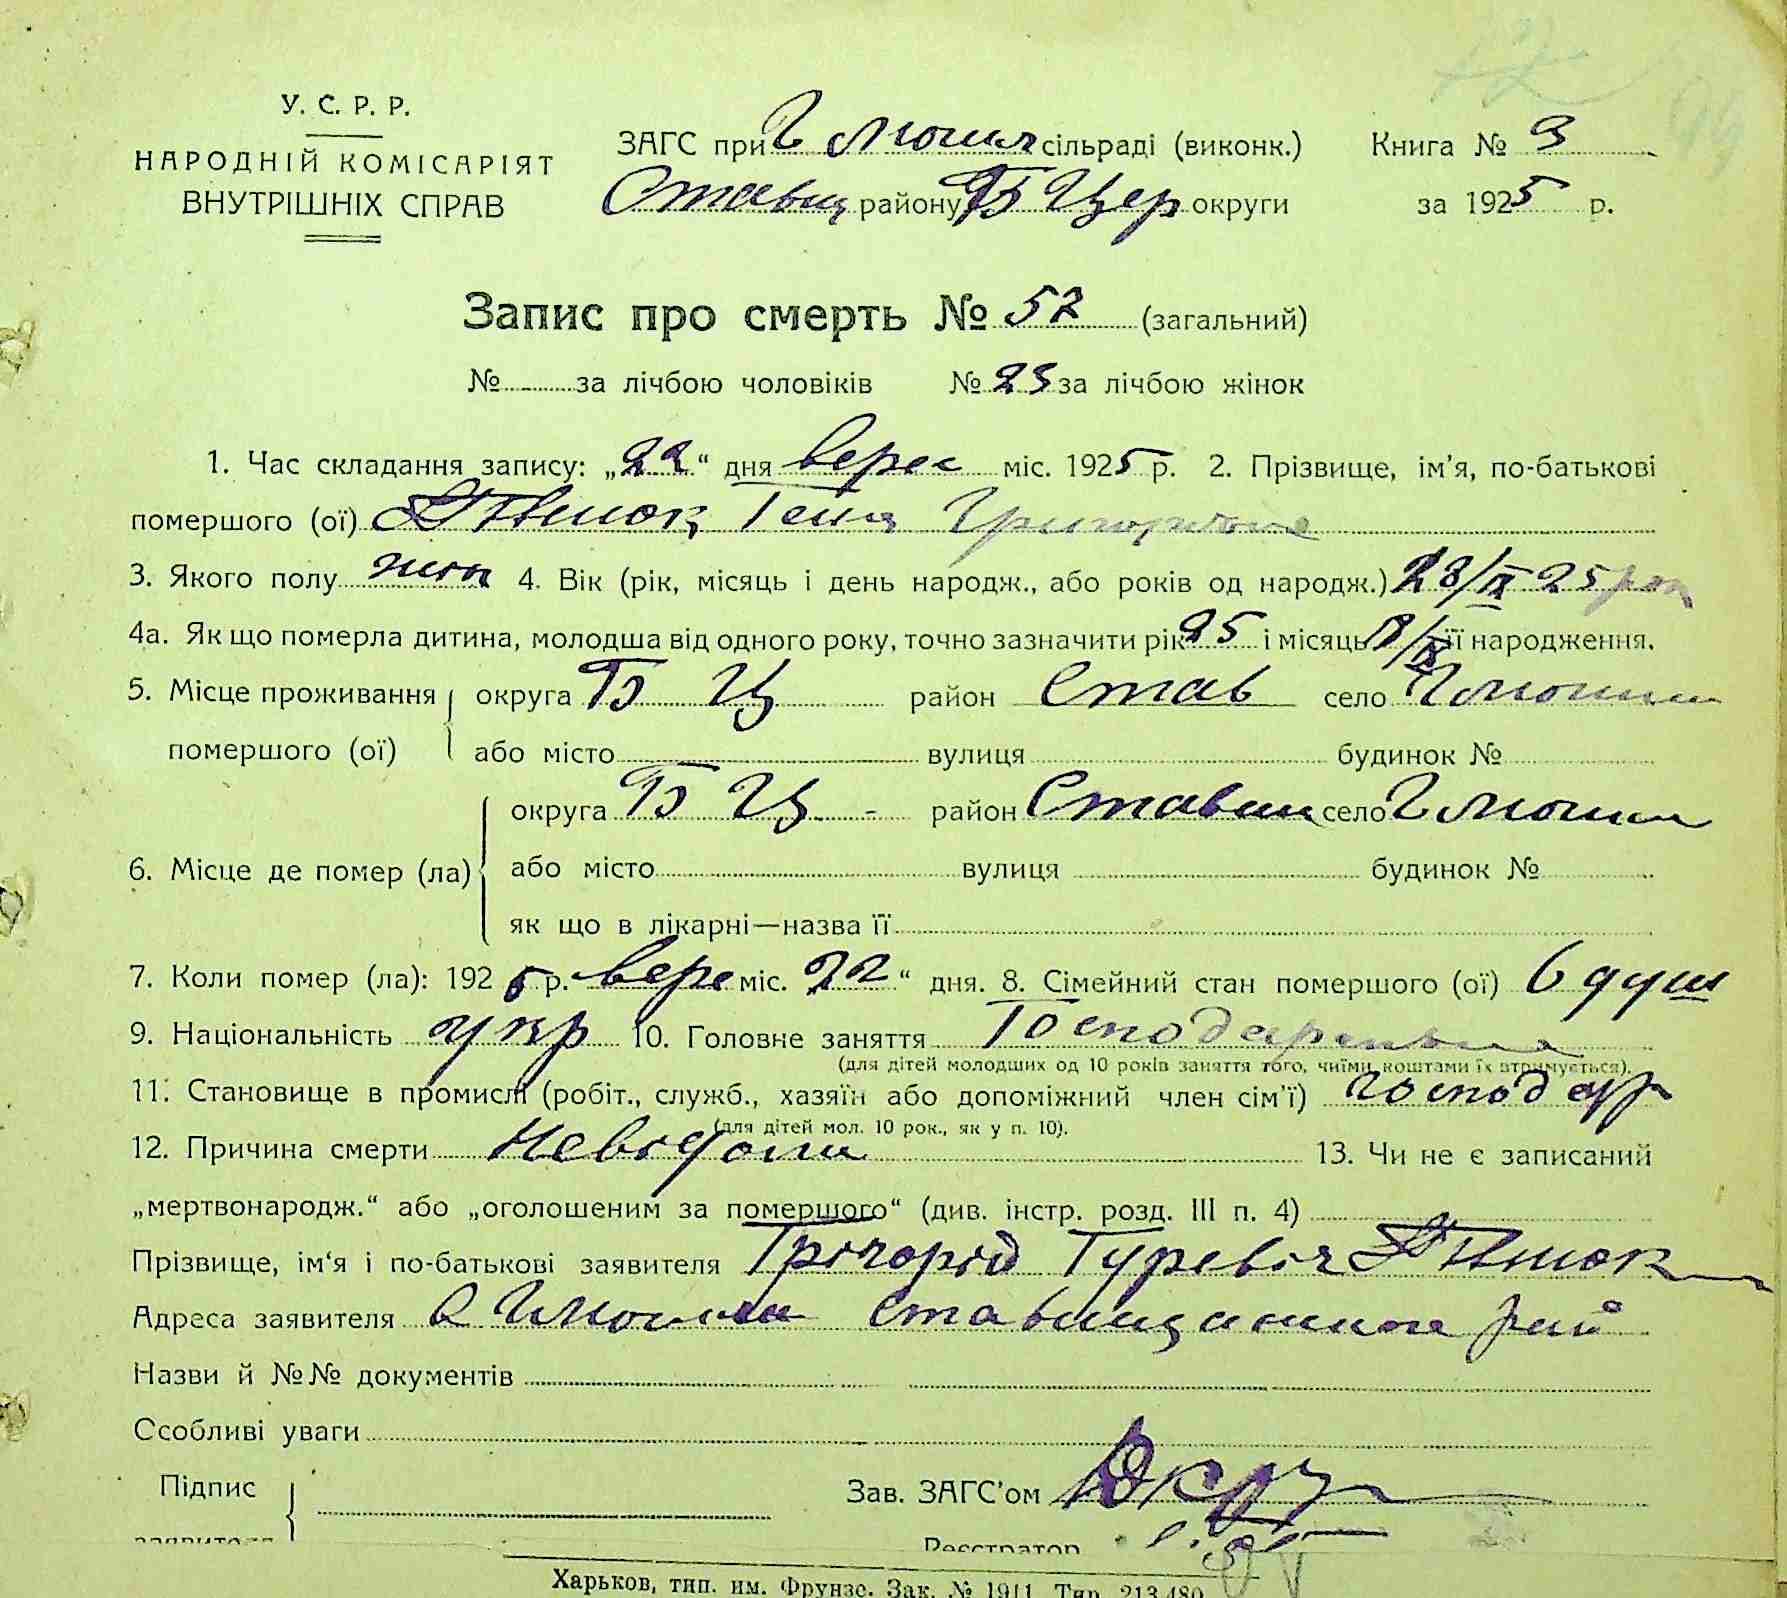 У. С. Р. Р.
НАРОДНІЙ КОМІСАРІЯТ
ВНУТРІШНІХ СПРАВ
ЗАГС при сільраді (виконк.)
Ставищ району Б Цер округи
Книга № 3
за 1925 р.
Запис про смерть № 52 (загальний)
№ за лічбою чоловіків № 23 за лічбою жінок
1. Час складання запису: „22“ дня верес міс. 1925 р. 2. Прізвище, ім’я, по-батькові
помершого (ої)
3. Якого полу жін 4. Вік (рік, місяць і день народж., або років од народж.) 25 рок
4а. Як що померла дитина, молодша від одного року, точно зазначити рік 25 і місяць її народження.
5. Місце проживання помершого (ої) округа Б Ц район Став село
або місто вулиця будинок №
6. Місце де помер (ла) округа Б Ц - район Ставищ село
або місто вулиця будинок №
як що в лікарні—назва її
7. Коли помер (ла): 1925 р. вере міс. 22“ дня. 8. Сімейний стан помершого (ої) 6 душ
9. Національність укр 10. Головне заняття
(для дітей молодших од 10 років заняття того, чиїми коштами їх втримується).
11. Становище в промислі (робіт., служб., хазяїн або допоміжний член сім’ї) господар
(для дітей мол. 10 рок., як у п. 10).
12. Причина смерти Невідома 13. Чи не є записаний
„мертвонародж.“ або „оголошеним за помершого“ (див. інстр. розд. III п. 4)
Прізвище, ім‘я і по-батькові заявителя Грігорій Гуревіч
Адреса заявителя
Назви й №№ документів
Особливі уваги
Підпис
заявителя
Зав. ЗАГС’ом
Реєстратор
Харьков, тип. им. Фрунзе. Зак. № 1911. Тир. 213.480